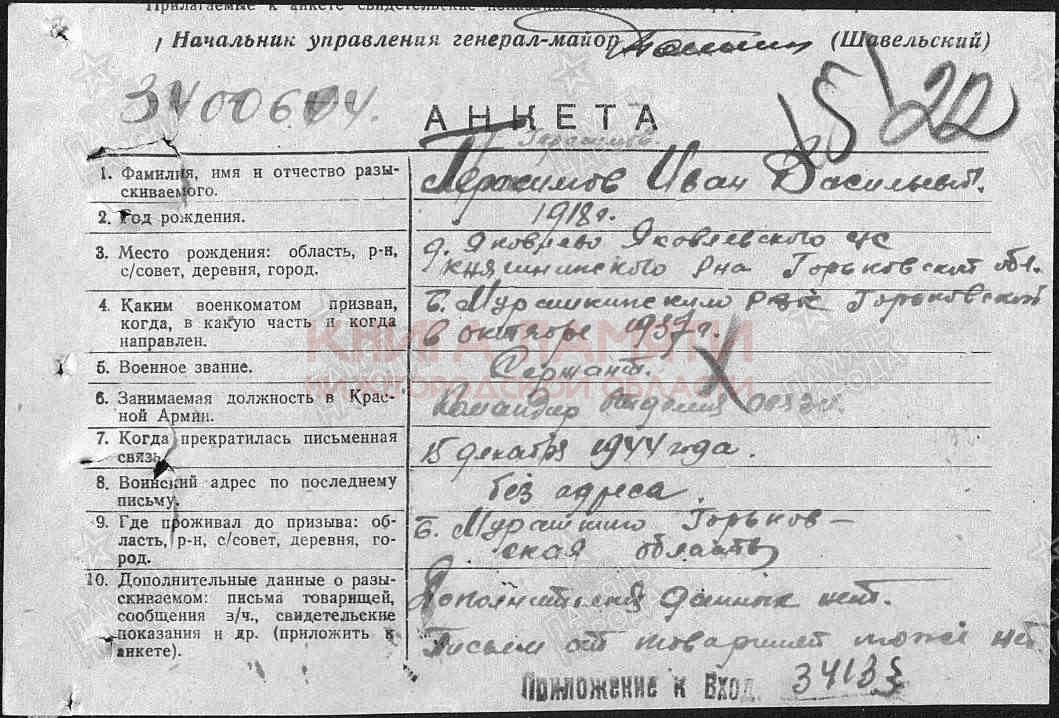 Прилагаемые к анкете свидетельские показания
Начальник управления генерал-майор (Шавельский)
3400644.
15/20
АНКЕТА
Герасимов.
1. Фамилия, имя и отчество разы-
скиваемого.
Герасимов Иван Васильев.
2. Год рождения.
1918 г.
3. Место рождения: область, р-н,
с/совет, деревня, город.
д. Яковлево Яковлевского с/с
Княгининского р-на Горьковской обл.
4. Каким военкоматом призван,
когда, в какую часть и когда
направлен.
Б. Мурашкинским РВК Горьковской
в октябре 1937 г.
5. Военное звание.
Сержант.
6. Занимаемая должность в Крас-
ной Армии.
Командир отделения
7. Когда прекратилась письменная
связь.
15 декабря 1944 года.
8. Воинский адрес по последнему
письму.
без адреса
9. Где проживал до призыва: об-
ласть, р-н, с/совет, деревня, го-
род.
Б. Мурашкино Горьков-
ская область
10. Дополнительные данные о разы-
скиваемом: письма товарищей,
сообщения в/ч., свидетельские
показания и др. (приложить к
анкете).
Дополнительных данных нет.
Писем от товарищей тоже нет
Приложение к Вход. 34133
КНИГА ПАМЯТИ
НИЖЕГОРОДСКОЙ ОБЛАСТИ